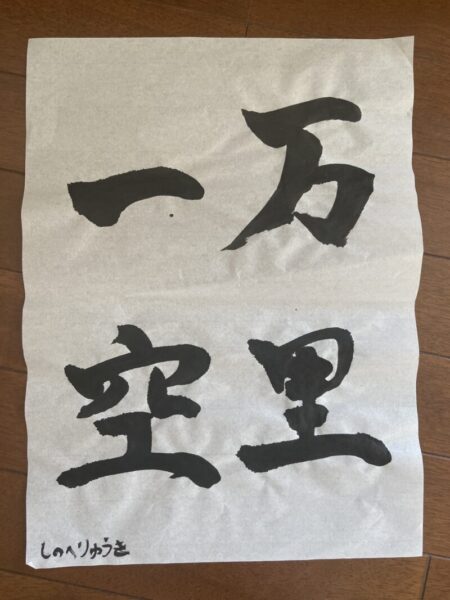 万里
一空
しのへりゅうき